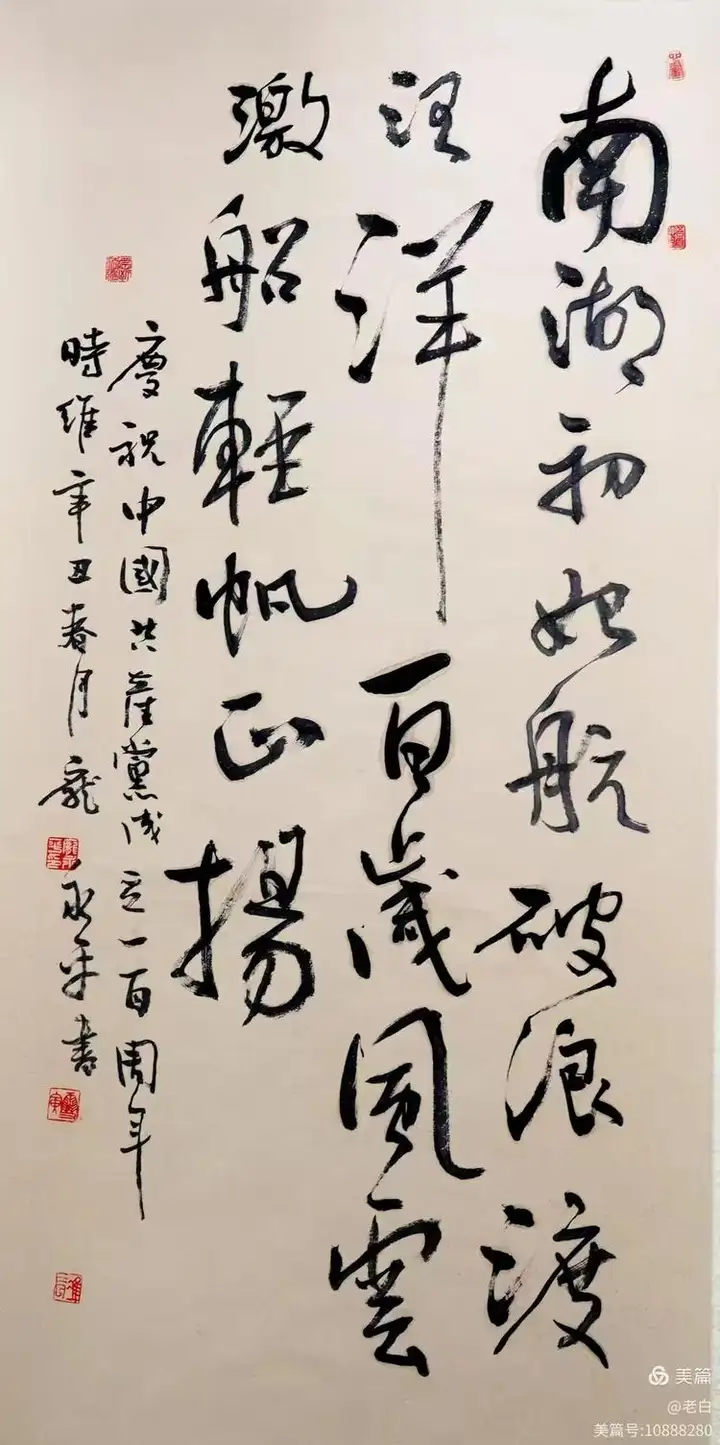 南湖初始航破浪渡
汪洋百歲風雲
激船輕帆正揚
慶祝中國共產黨成立一百周年
時維辛丑春月龐
永平書
美篇
@老白
美篇号:10888280